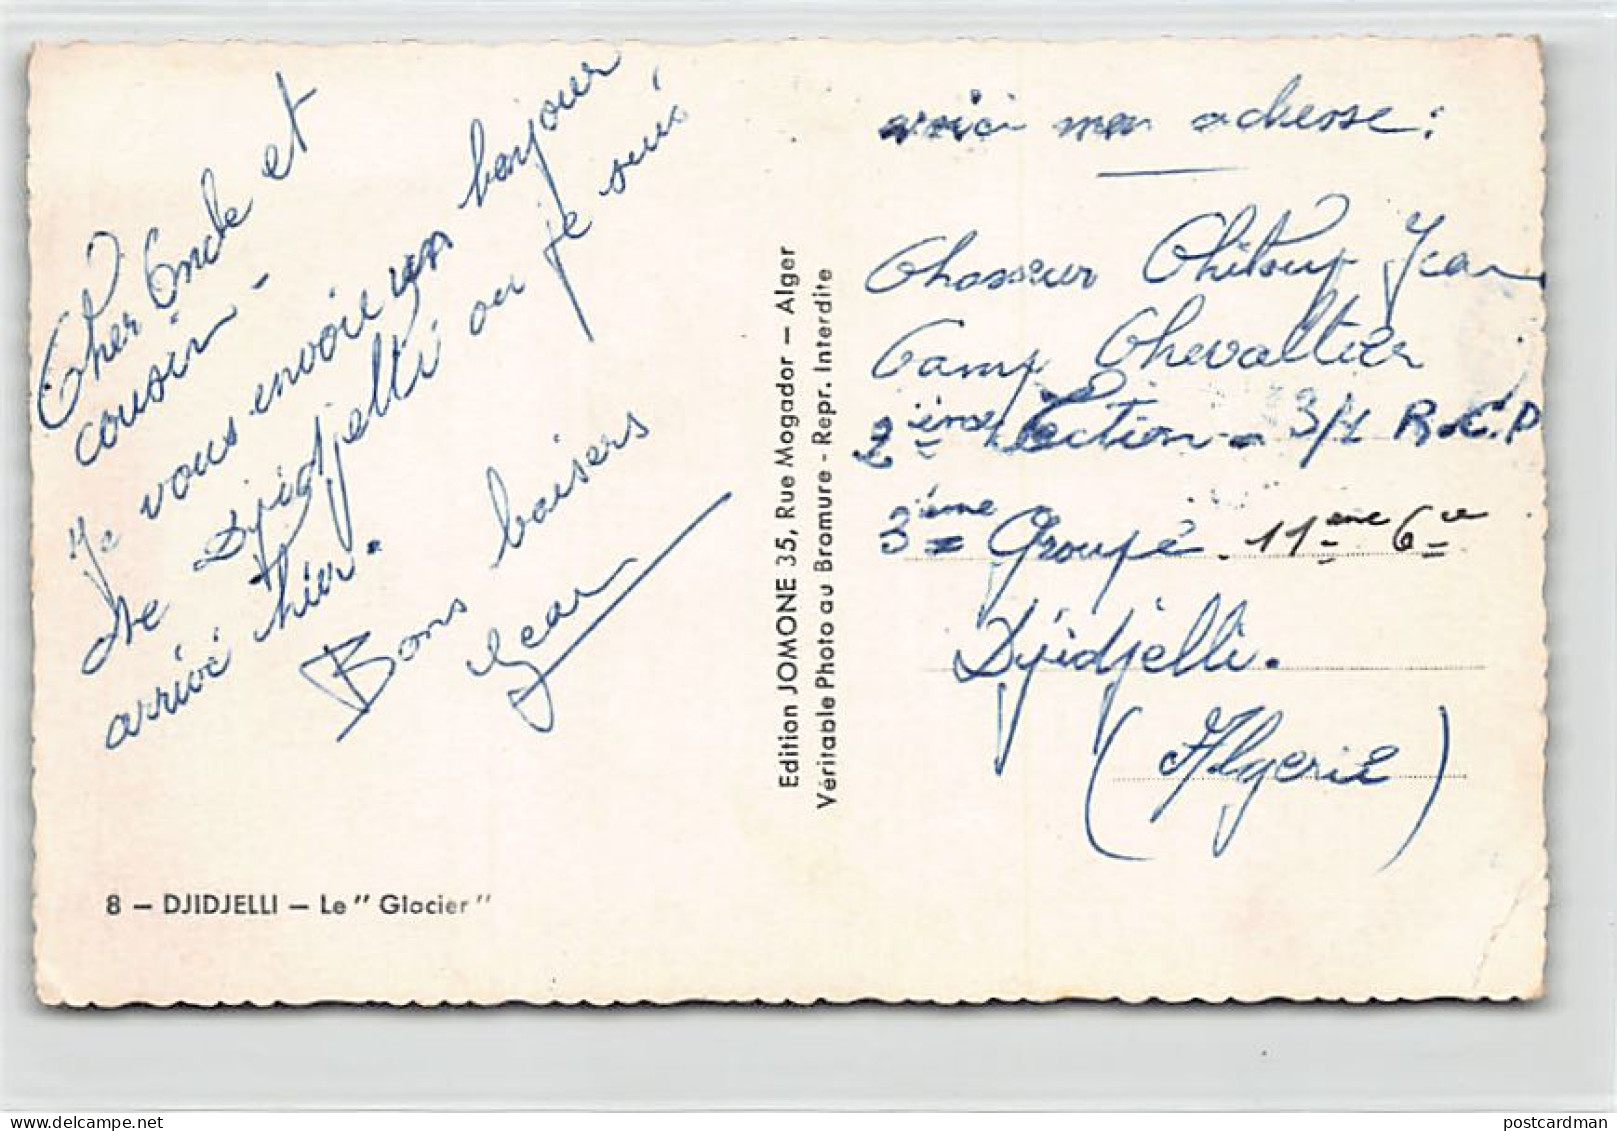 Cher Oncle et
cousin -
Je vous envoie un bonjour,
de Djidjelli ou je suis
arrivé hier.
Bons baisers
Jean
8 - DJIDJELLI - Le " Glacier "
Edition JOMONE 35, Rue Mogador - Alger
Véritable Photo au Bromure - Repr. Interdite
voici mon adresse :
Chasseur Jean
Camp Chevallier
2ième Section - 3/1 R.C.P
3ème Groupe . 11ème Cie
Djidjelli.
(Algerie)
postcardman